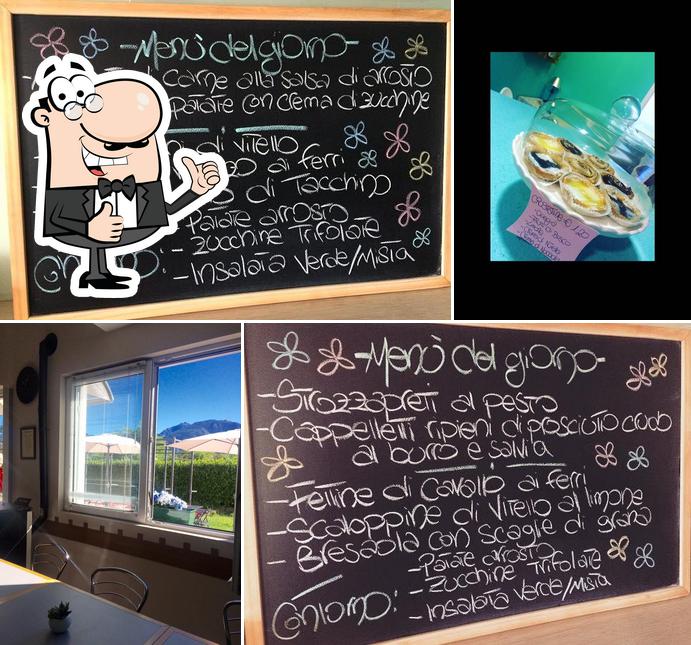 -Menù del giorno-
carne alla salsa di arrosto
patate con crema di zucchine
di vitello
ai ferri
di Tacchino
Patate arrosto
- zucchine Trifolate
- Insalata Verde/Mista
CROSTATINE 1,20
-Menù del giorno-
- Strozzapreti al pesto
- Cappelletti ripieni di prosciutto crudo
al burro e salvia
- Fettine di cavallo ai ferri
- Scaloppine di vitello al limone
- Bresaola con scaglie di grana
- Patate arrosto
- zucchine Trifolate
Contorno:
- Insalata Verde/Mista